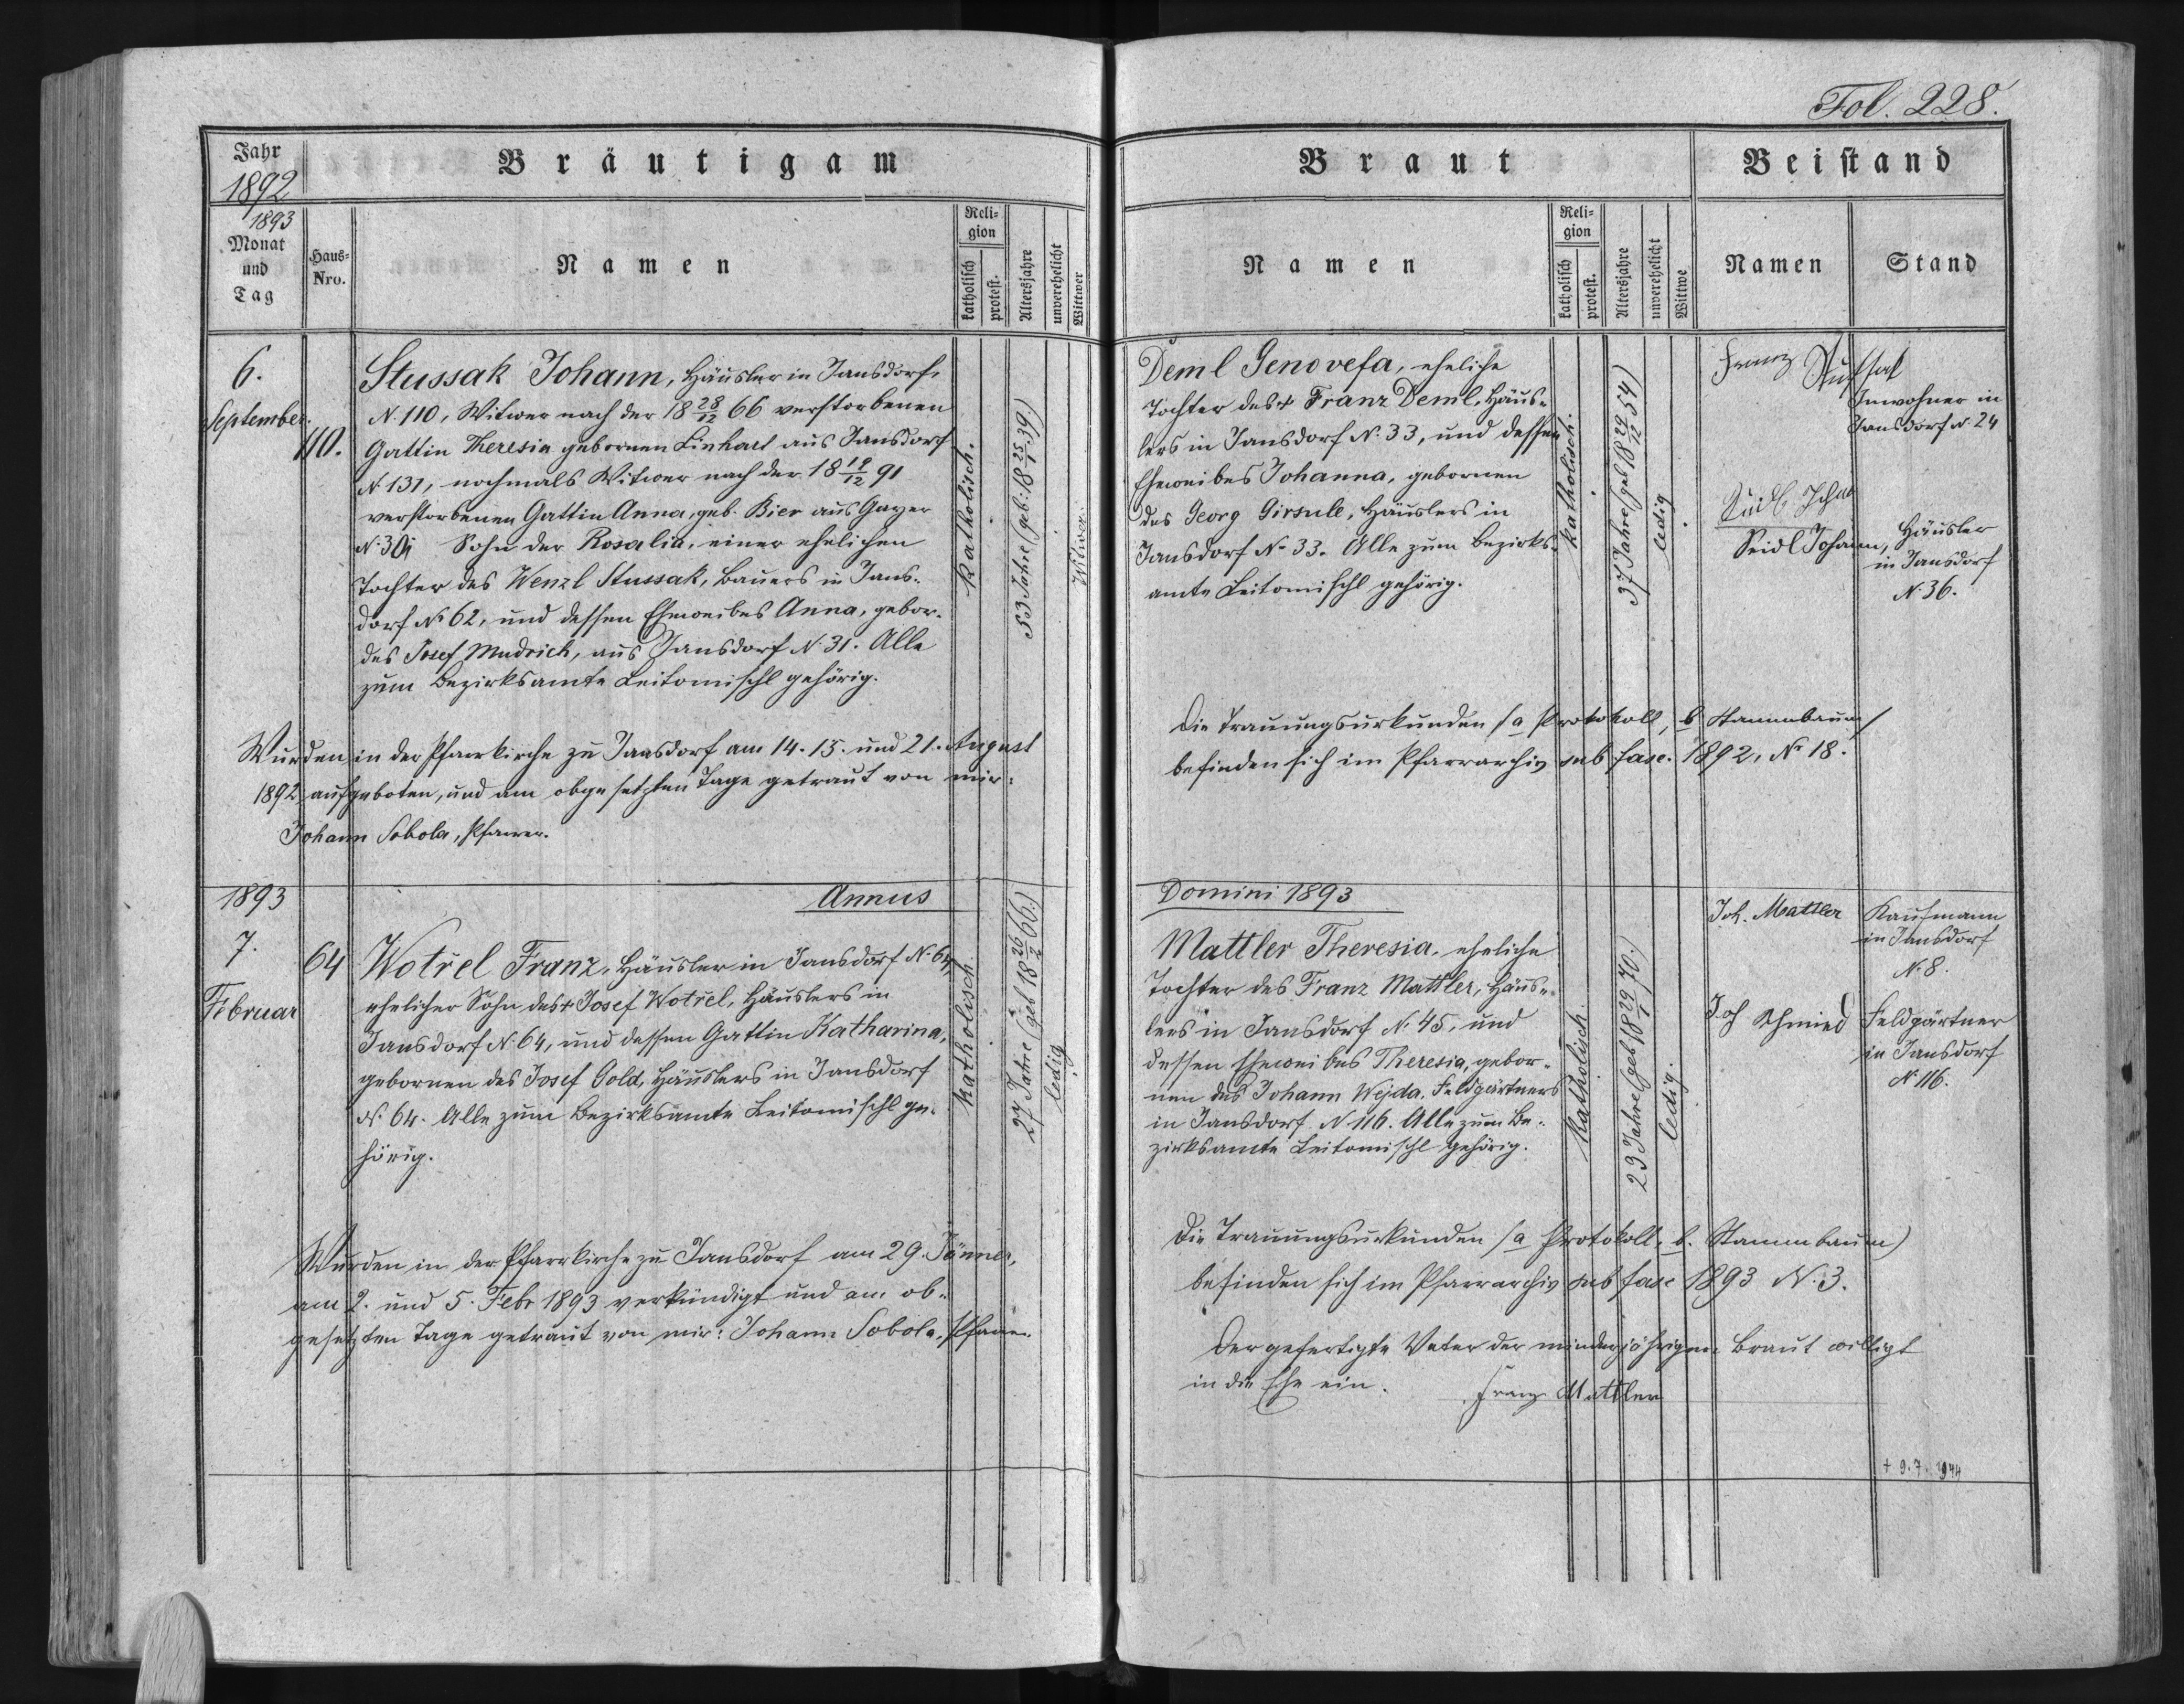 Fol. 228.
Jahr
1892
1893
Monat
und
Tag
Haus-
Nro.
Bräutigam
Namen
Reli-
gion
katholisch
protest.
Altersjahre
unverehelicht
Wittwer
Braut
Namen
Reli-
gion
katholisch
protest.
Altersjahre
unverehelicht
Wittwe
Beistand
Namen
Stand
6.
September.
110.
Stussak Johann, Häusler in Jansdorf,
N. 110, Witwer nach der 18 28/12 66 verstorbenen
Gattin Theresia gebornen Linhart aus Jansdorf
N. 131, nochmals Witwer nach der 18 19/12 91
verstorbenen Gattin Anna, geb. Bier aus Gayer
Sohn der Rosalia, einer ehelichen
Tochter des Wenzl Stussak, Bauers in Jans-
dorf No 62, und dessen Eheweibes Anna, gebor.
des Josef Mudrich, aus Jansdorf N. 31. Alle
zum Bezirksamte Leitomischl gehörig.
katholisch.
53 Jahre (geb: 18 25/1 39.)
Witwer.
Deml Genovefa, eheliche
Tochter des + Franz Deml, Häus-
lers in Jansdorf N. 33, und dessen
Eheweibes Johanna, gebornen
des Georg Girsule, Häuslers in
Jansdorf No 33. Alle zum Bezirks-
amte Leitomischl gehörig.
katholisch.
37 Jahre (geb 18 29/12 54)
ledig
Franz Stussak
Inwohner in
Jansdorf N. 24
Seidl Johann, Häusler
in Jansdorf
N. 36.
Wurden in der Pfarrkirche zu Jansdorf am 14. 15. und 21. August
1892 aufgeboten, und am obgesetzten Tage getraut von mir:
Johann Sobola, Pfarrer.
Die Trauungsurkunden /a Protokoll, b Stammbaum/
befinden sich im Pfarrarchiv sub fasc. 1892, No 18.
1893
Annus
Domini 1893
7.
Februar
64
Wotřel Franz, Häusler in Jansdorf N. 64,
ehelicher Sohn des + Josef Wotřel, Häuslers in
Jansdorf N. 64, und dessen Gattin Katharina,
gebornen des Josef Gold, Häuslers in Jansdorf
N. 64. Alle zum Bezirksamte Leitomischl ge-
hörig.
katholisch.
27 Jahre (geb 18 26/2 66.)
ledig
Mattler Theresia, eheliche
Tochter des Franz Mattler, Häus-
lers in Jansdorf N. 45, und
dessen Eheweibes Theresia, gebor-
nen des Johann Wejda, Feldgärtners
in Jansdorf N 116. Alle zum Be-
zirksamte Leitomischl gehörig.
katholisch
23 Jahre (geb 18 29/1 70.)
ledig.
Joh. Mattler
Kaufmann
in Jansdorf
N. 8.
Joh Schmied
Feldgärtner
in Jansdorf
N. 116.
Wurden in der Pfarrkirche zu Jansdorf am 29. Jänner,
am 2. und 5. Febr 1893 verkündigt und am ob-
gesetzten Tage getraut von mir: Johann Sobola, Pfarrer.
Die Trauungsurkunden /a Protokoll, b. Stammbaum)
befinden sich im Pfarrarchiv sub fasc 1893 N. 3.
Der gefertigte Vater der minderjährigen Braut willigt
in die Ehe ein. Franz Mattler
+ 9. 7. 1944